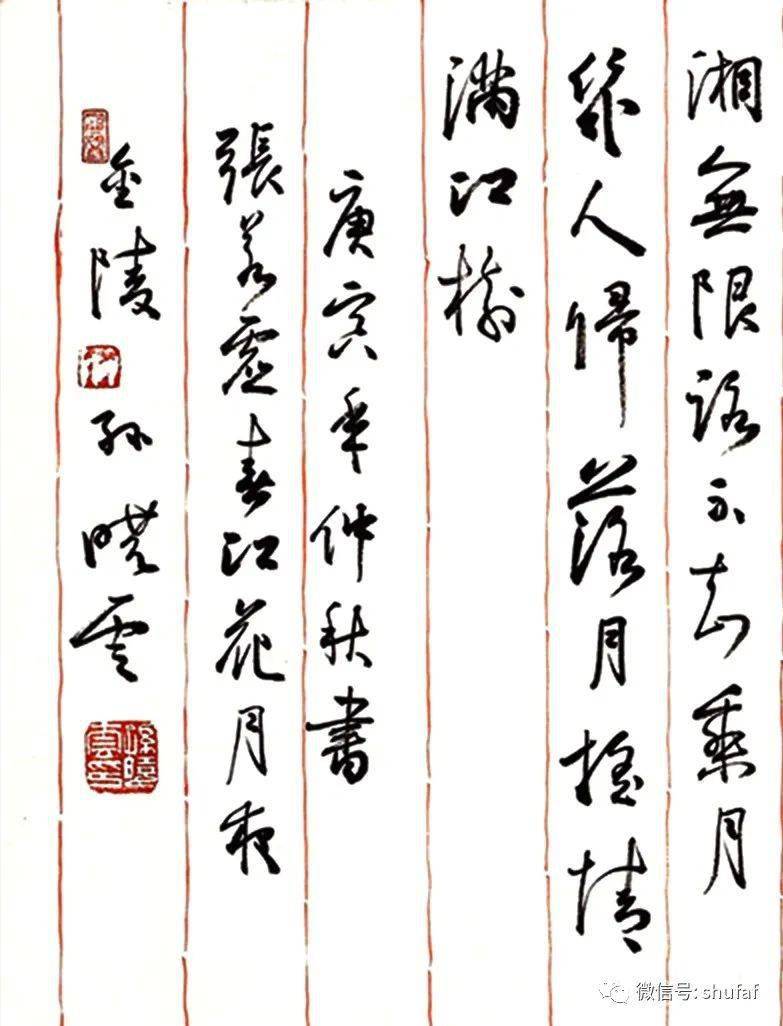 湘無限路不知乘月
幾人歸落月搖情
滿江樹
庚寅年仲秋書
張若虛春江花月夜
金陵孫曉雲
孫曉雲印
微信号: shufaf